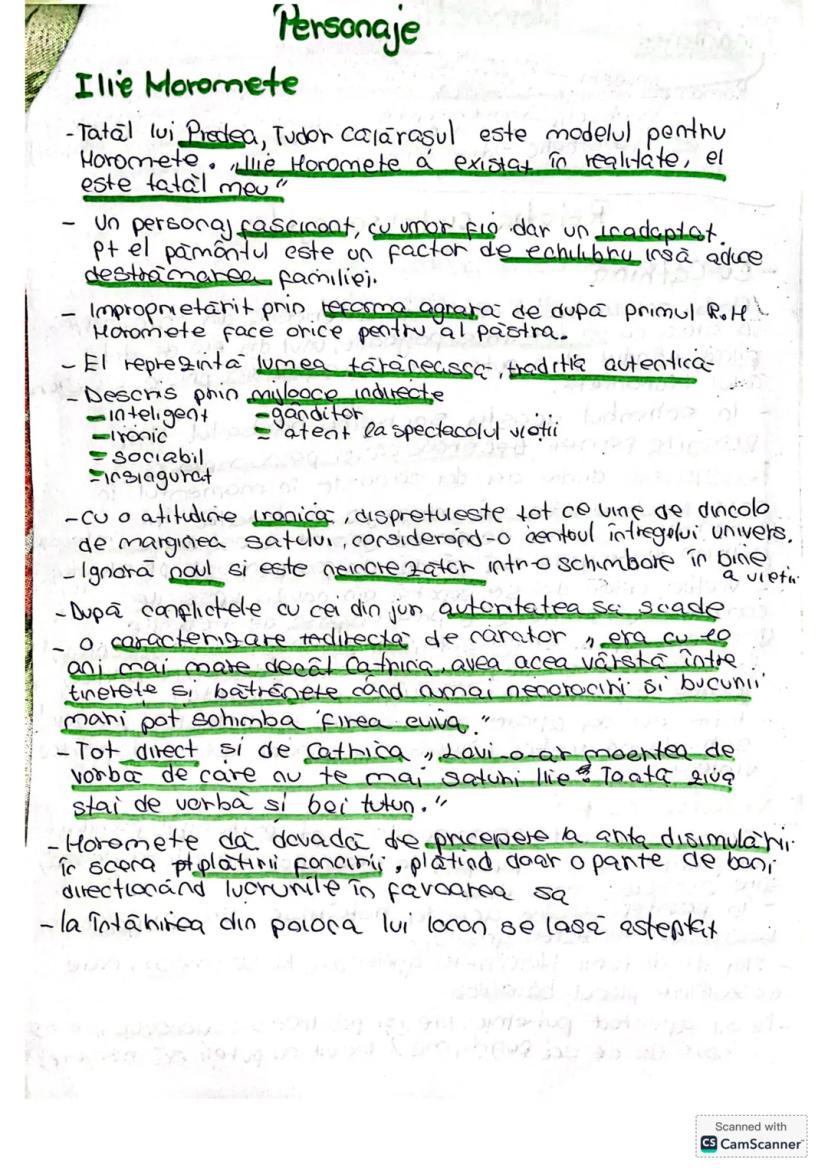 Personaje
Ilie Moromete
-Tatăl lui Preda, Tudor Călărașul este modelul pentru
Moromete. „Ilie Moromete a existat în realitate, el
este tatăl meu"
- Un personaj fascinant, cu umor fin dar un inadaptat.
pt el pământul este un factor de echilibru însă aduce
destrămarea familiei.
- Împroprietărit prin reforma agrară de după primul R.M
Moromete face orice pentru al păstra.
- El reprezintă lumea țărănească, tradiția autentică
- Descris prin mijloace indirecte
-inteligent -gânditor
-ironic - atent la spectacolul vieții
- sociabil
-însingurat
-Cu o atitudine ironică, disprețuiește tot ce vine de dincolo
de marginea satului, considerând-o centrul întregului univers.
- Ignoră noul și este neîncrezător într-o schimbare în bine
a vieții.
-După conflictele cu cei din jur autoritatea sa scade
- o caracterizare indirectă de narator „era cu 10
ani mai mare decât Catrina, avea acea vârstă între
tinerețe și bătrânețe când numai nenorociri și bucurii
mari pot schimba firea cuiva."
- Tot direct și de Catrica „Lovi-o-ar moartea de
vorbă de care nu te mai saturi Ilie Toată ziua
stai de vorbă și bei tutun."
-Moromete dă dovadă de pricepere la arta disimulării
în scena pt plătirii foncirii, plătind doar o parte de bani
direcționând lucrurile în favoarea sa
-la întâlnirea din poiana lui Iocan se lasă așteptat
Scanned with
CS CamScanner